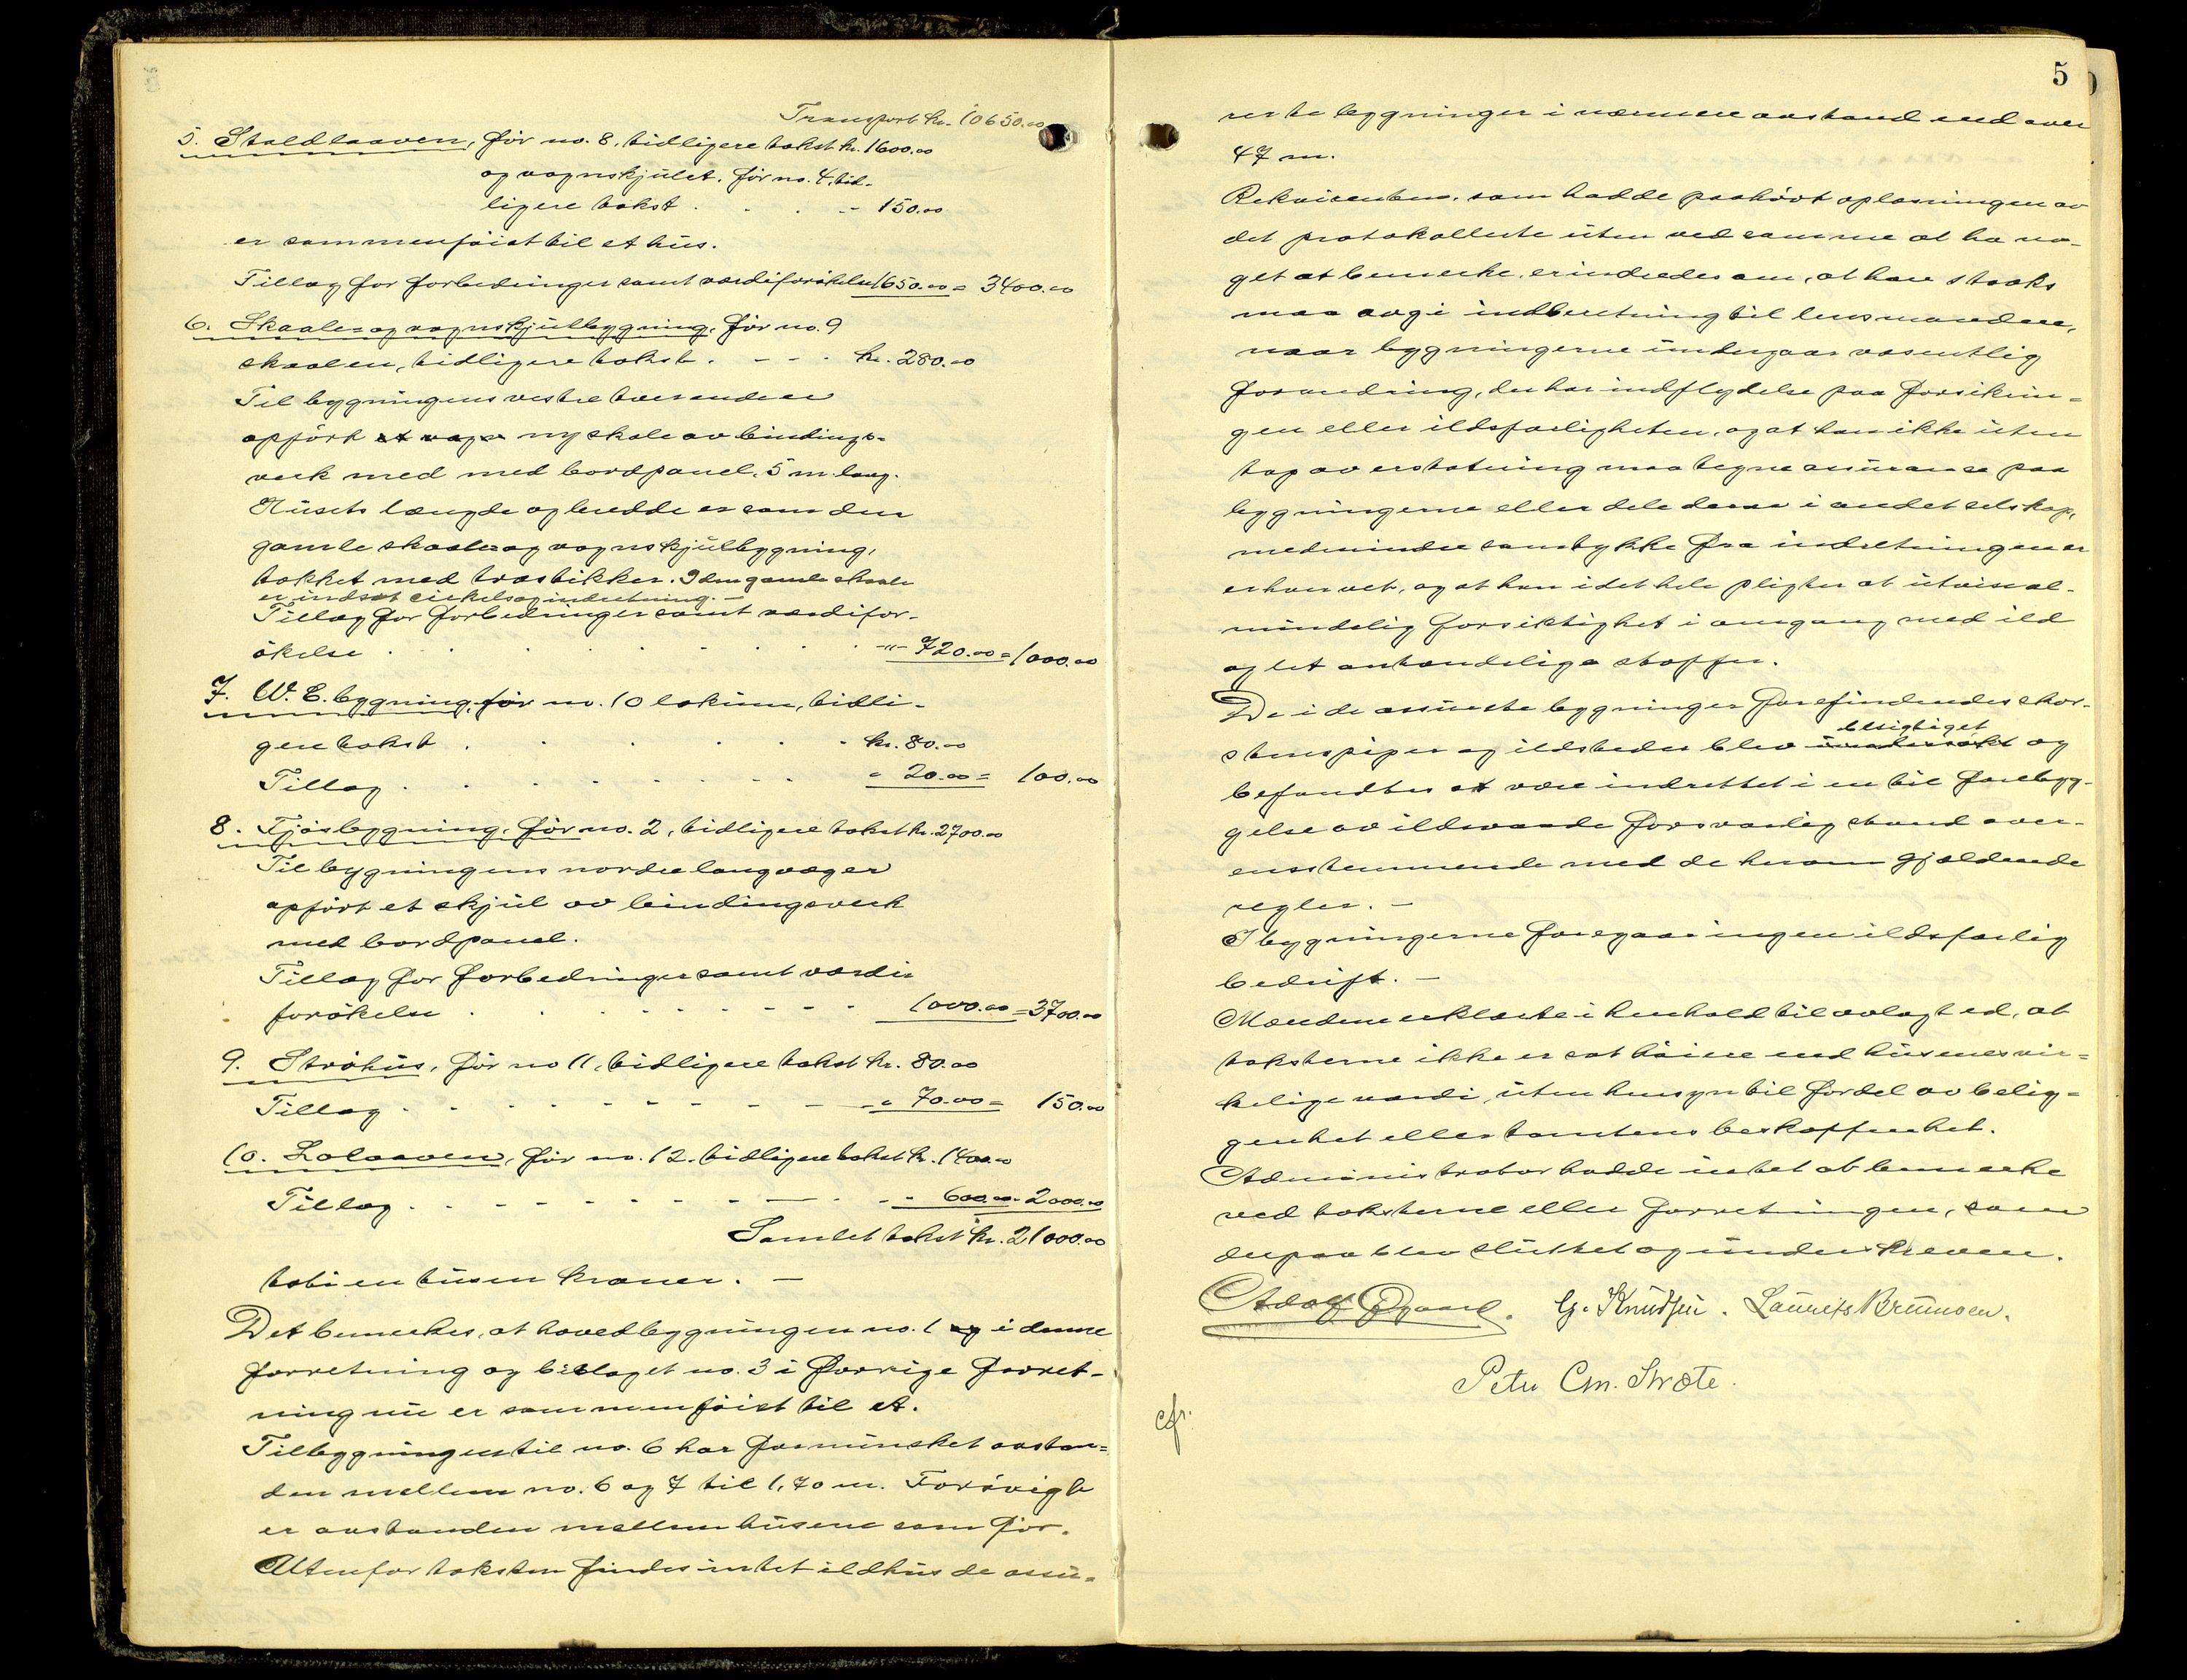 Transport kr. 10650.00
5. Staldlaaven, før no. 8, tidligere takst kr. 1600.00
og vognskjulet. før no. 4, tid-
ligere takst . . . . - 150.00
er sammenføiet til et hus.
Tillæg for forbedringer samt værdiforøkelse 1650.00 = 3400.00
6. Skaale og vognskjulbygning, før no. 9
skaalen, tidligere takst . - - . kr. 280.00
Til bygningens vestre tverende er
opført et vogn ny skale av bindings-
verk med med bordpanel, 5 m. lang.
Husets længde og bredde er som den
gamle skaale og vognskjulbygning,
tækket med træstikker. I den gamle skaale
er indsat cirkelsagindretning. -
Tillæg for forbedringer samt værdifor-
økelse . . . . . . . -"- 720.00 = 1000.00
7. W. C. bygning, før no. 10 lokum, tidli-
gere takst . . . . . . kr. 80.00
Tillæg . . . . . . . " 20.00 = 100.00
8. Fjøsbygning, før no. 2, tidligere takst kr. 2700.00
Til bygningens nordre langvæg er
opført et skjul av bindingsverk
med bordpanel.
Tillæg for forbedringer samt værdi
forøkelse . . . . - - - - 1000.00 = 3700.00
9. Strøhus, før no 11, tidligere takst kr. 80.00
Tillæg . - - - - - - - - " 70.00 = 150.00
10. Lolaaven, før no. 12. tidligere takst kr. 1400.00
Tillæg . - - - - - - - . - - 600.00 = 2000.00
Samlet takst kr. 21000.00
toti en tusen kroner. -
Det bemerkes, at hovedbygningen no. 1 og i denne
forretning og bislaget no. 3 i forrige forret-
ning nu er sammenføiet til et.
Tilbygningen til no. 6 har forminsket avstan-
den mellem no. 6 og 7 til 1,70 m. Forøvrigt
er avstanden mellem husene som før.
Utenfor taksten findes intet ildhus de assu-
5
rerte bygninger i nærmere avstand end over
47 m.
Rekvirenten, som hadde paahørt oplæsningen av
det protokollerte uten ved samme at ha no-
get at bemerke, erindredes om, at han straks
maa avgi indberetning til lensmanden,
naar bygningerne undergaar væsentlig
forandring, der har indflydelse paa forsikrin-
gen eller ildsfarligheten, og at han ikke uten
tap av erstatning maa tegne assuranse paa
bygningerne eller dele derav i andet selskap,
medmindre samtykke fra indretningen er
erhvervet, og at han i det hele pligter at utvise al-
mindelig forsiktighet i omgang med ild
og let antændelige stoffer.
De i de assurerte bygninger forefindendes skor-
stenspiper og ildsteder blev undersøkt besigtiget og
befandtes at være indrettet i en til forebyg-
gelse av ildsvaade forsvarlig stand over-
ensstemmende med de herom gjældende
regler. -
I bygningerne foregaar ingen ildsfarlig
bedrift. -
Mændene erklærte i henhold til avlagt ed, at
taksterne ikke er sat høiere end husenes vir-
kelige værdi, uten hensyn til fordel av belig-
genhet eller tomtens beskaffenhet.
Administrator hadde intet at bemerke
ved taksterne eller forretningen, som
derpaa blev sluttet og underskreven.
G. Knudsen. Laurits Brunsen.
Peter Chr. Stræte.
cfr.